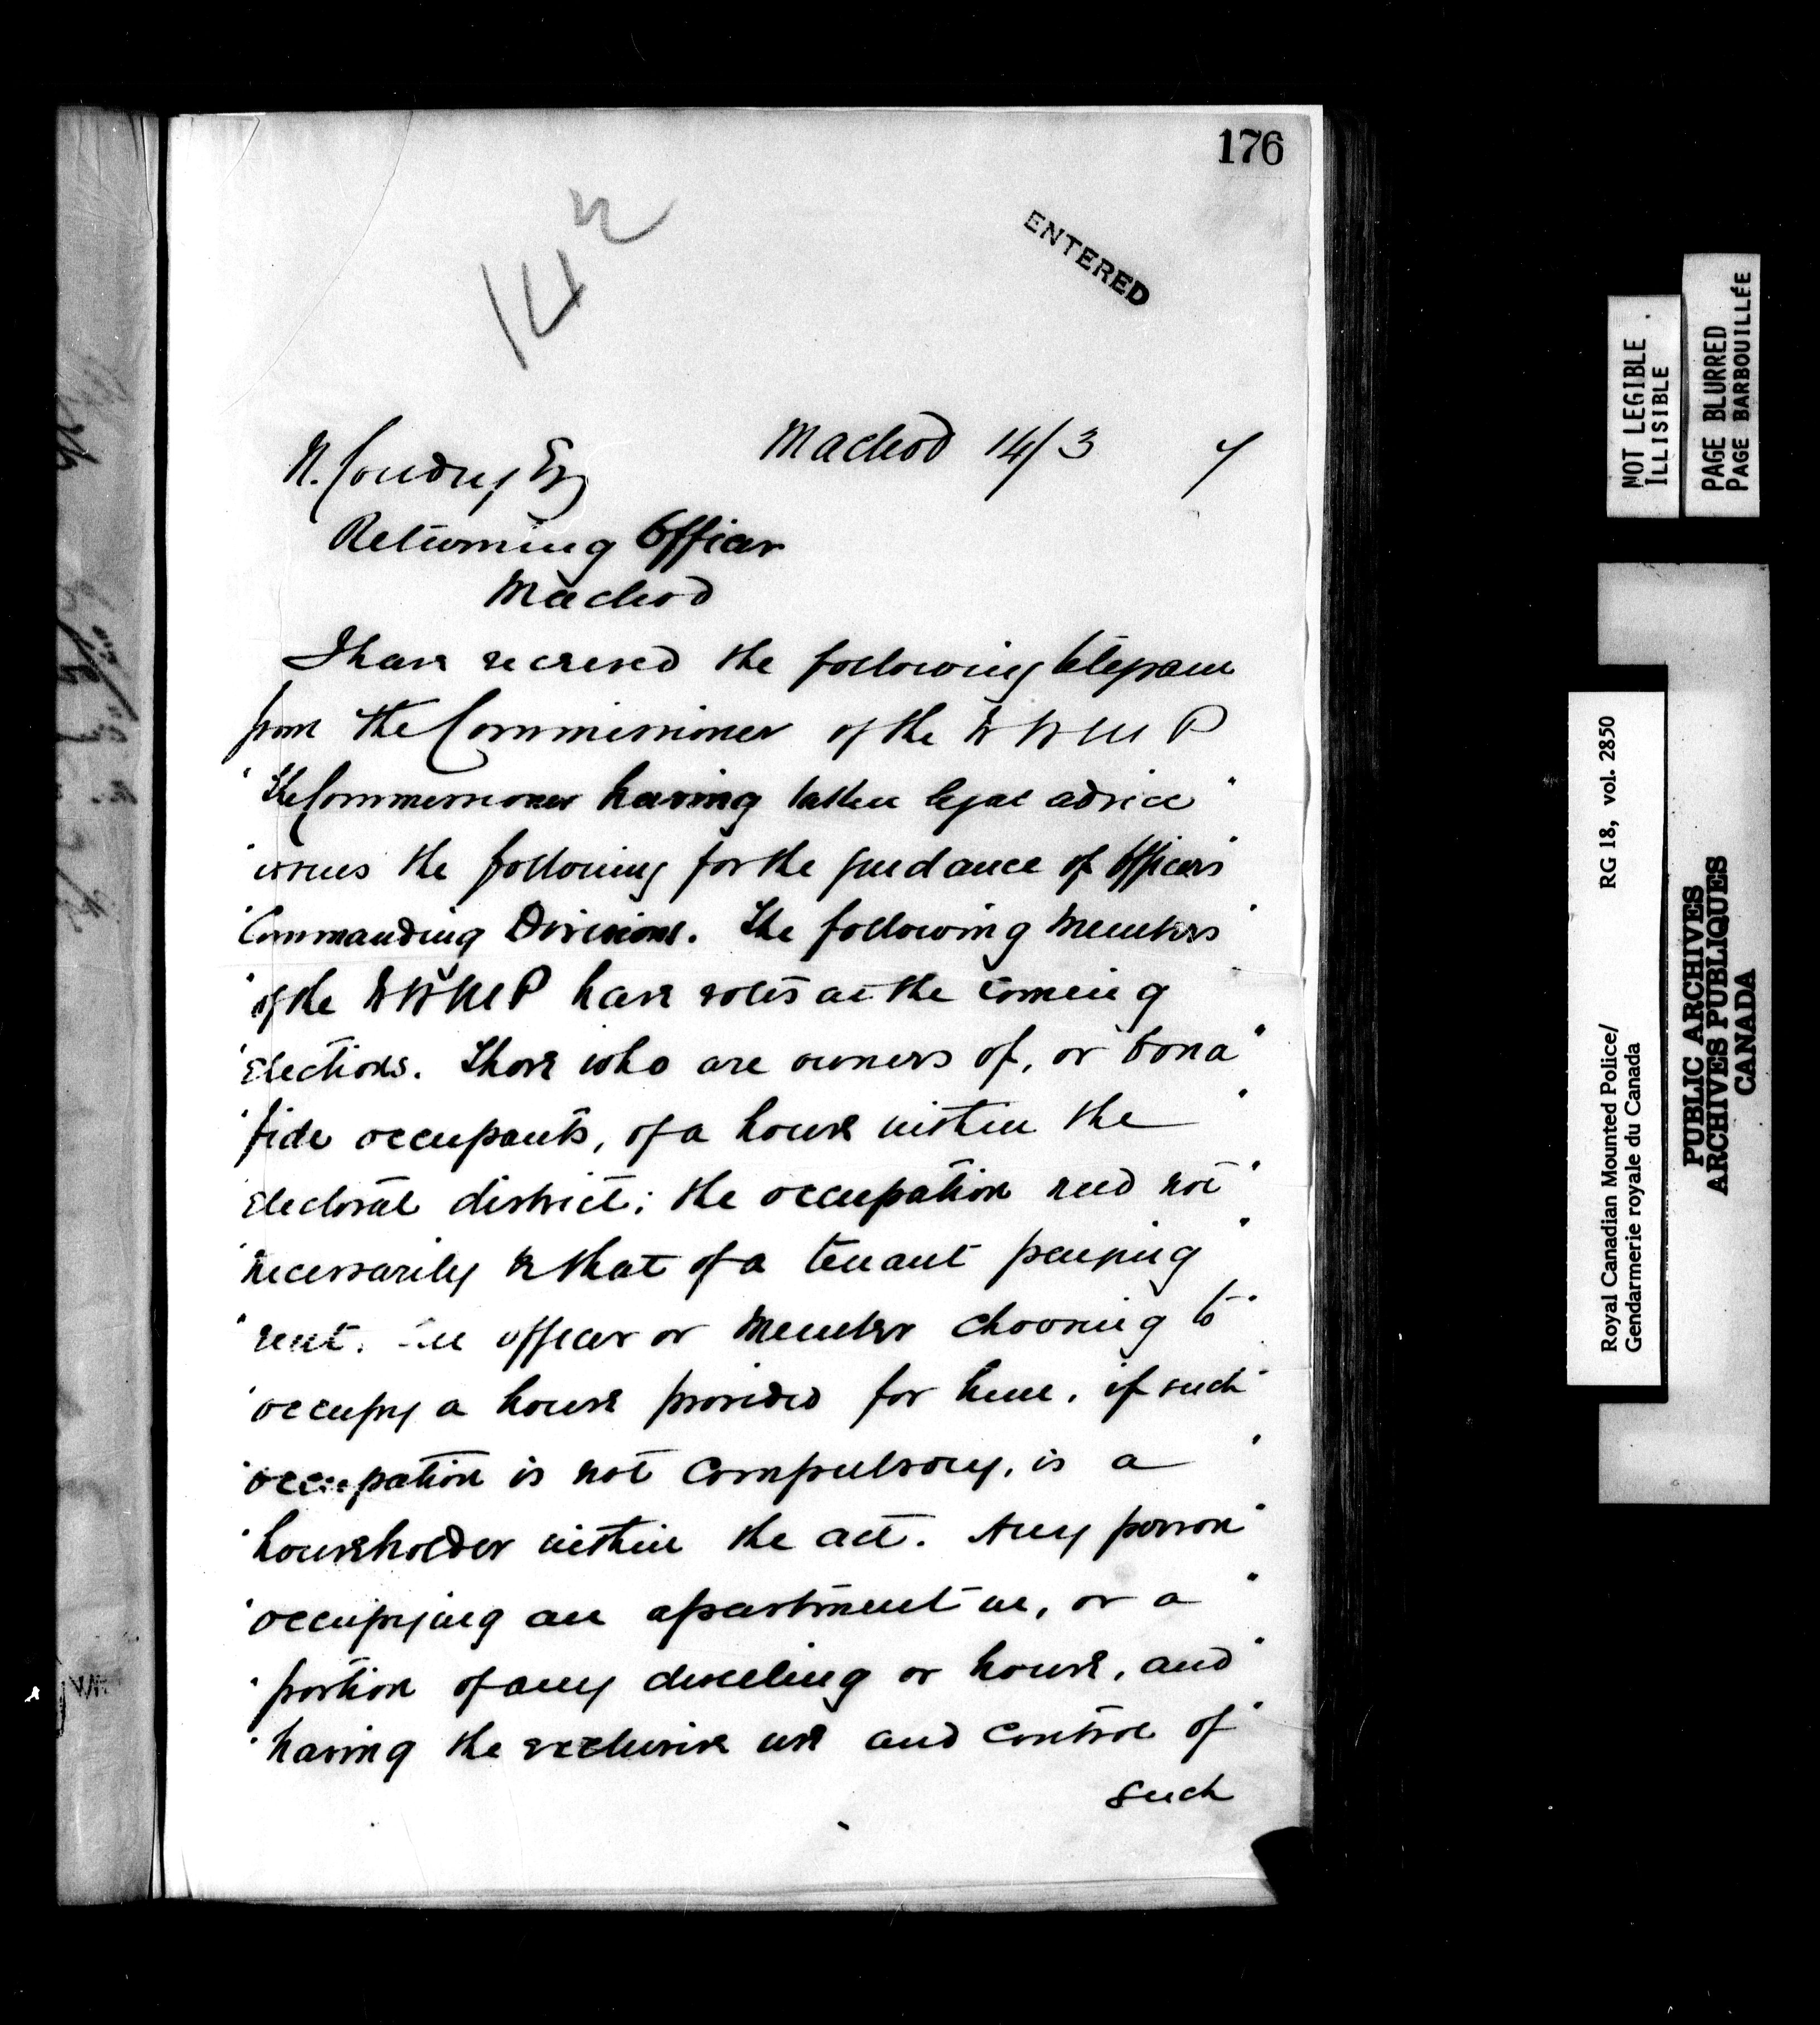 176
ENTERED
Macleod 14/3 7
N. Coudry Esq
Returning Officer
Macleod
I have received the following telegram
from the Commissioner of the N W M P
"The Commissioner having taken legal advice"
"issues the following for the guidance of Officers"
"Commanding Divisions. The following members"
"of the NWMP have votes at the coming
"elections. Those who are owners of, or bona"
"fide occupants, of a house within the"
"electoral district; the occupation need not"
"necessarily be that of a tenant paying"
"rent. An officer or member choosing to"
"occupy a house provided for him, if such"
"occupation is not compulsory, is a"
"householder within the act. Any person"
"occupying an apartment in, or a"
"portion of any dwelling or house, and"
"having the exclusive use and control of"
such
NOT LEGIBLE
ILLISIBLE
PAGE BLURRED
PAGE BARBOUILLÉE
Royal Canadian Mounted Police/ RG 18, vol. 2850
Gendarmerie royale du Canada
PUBLIC ARCHIVES
ARCHIVES PUBLIQUES
CANADA